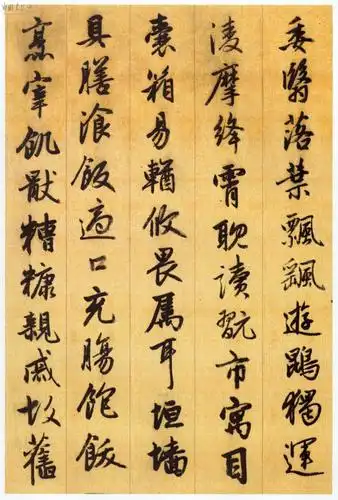 委翳落葉飄颻遊鵾獨運
淩摩絳霄耽讀翫市寓目
囊箱易輶攸畏属耳垣墻
具膳湌飯適口充腸飽飫
烹宰飢猒糟糠親戚故舊